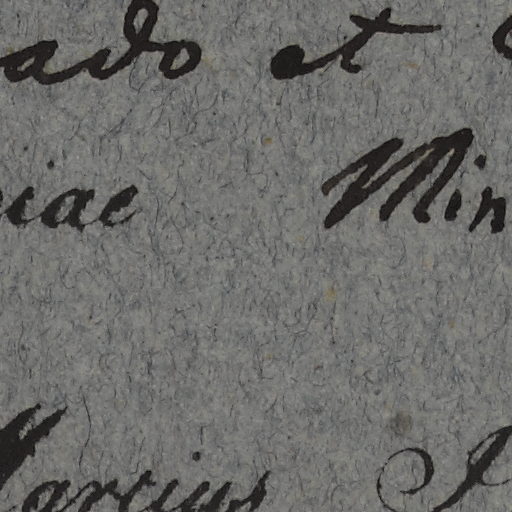 ado et
iae Min
Marcius